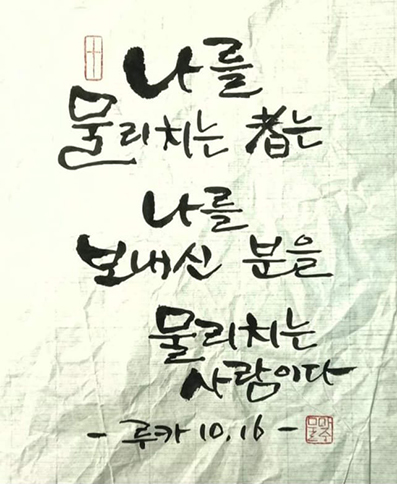 나를
물리치는 者는
나를
보내신 분을
물리치는
사람이다
- 루카 10,16 -